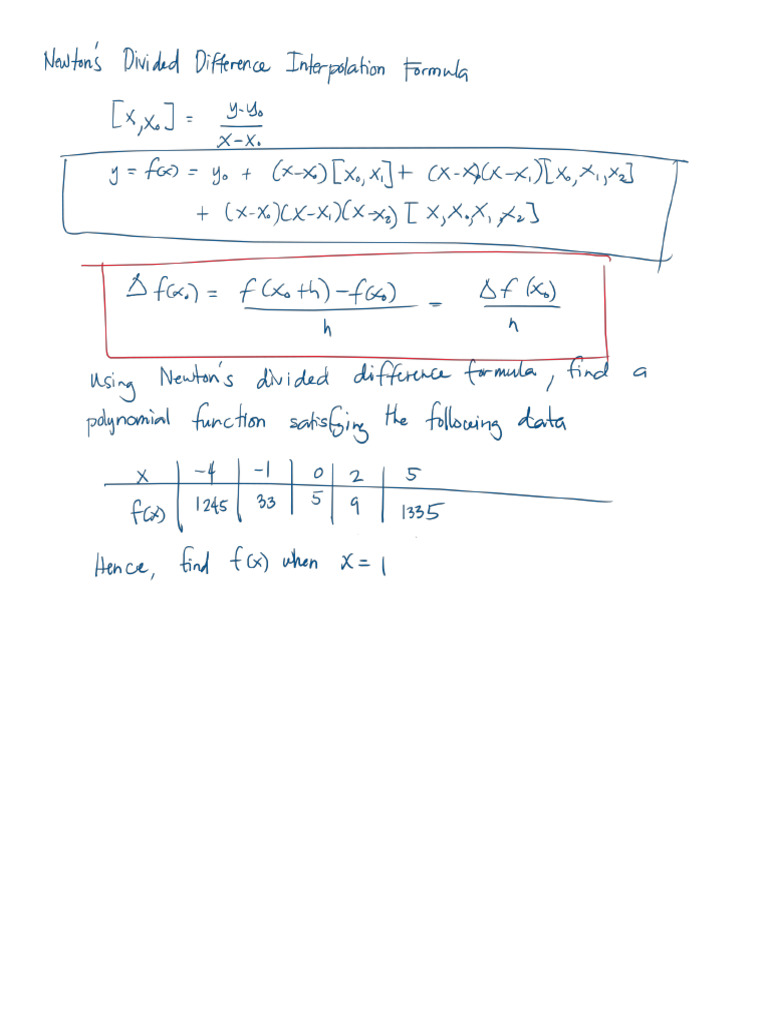 Newton's Divided Difference Interpolation Formula
[x,x₀] = y-y₀ / x-x₀
y = f(x) = y₀ + (x-x₀)[x₀,x₁] + (x-x₀)(x-x₁)[x₀,x₁,x₂]
+ (x-x₀)(x-x₁)(x-x₂)[x,x₀,x₁,x₂]
Δf(x₀) = f(x₀+h)-f(x₀) / h = Δf(x₀) / h
Using Newton's divided difference formula, find a
polynomial function satisfying the following data
x | -4 | -1 | 0 | 2 | 5
f(x) | 1245 | 33 | 5 | 9 | 1335
Hence, find f(x) when x = 1